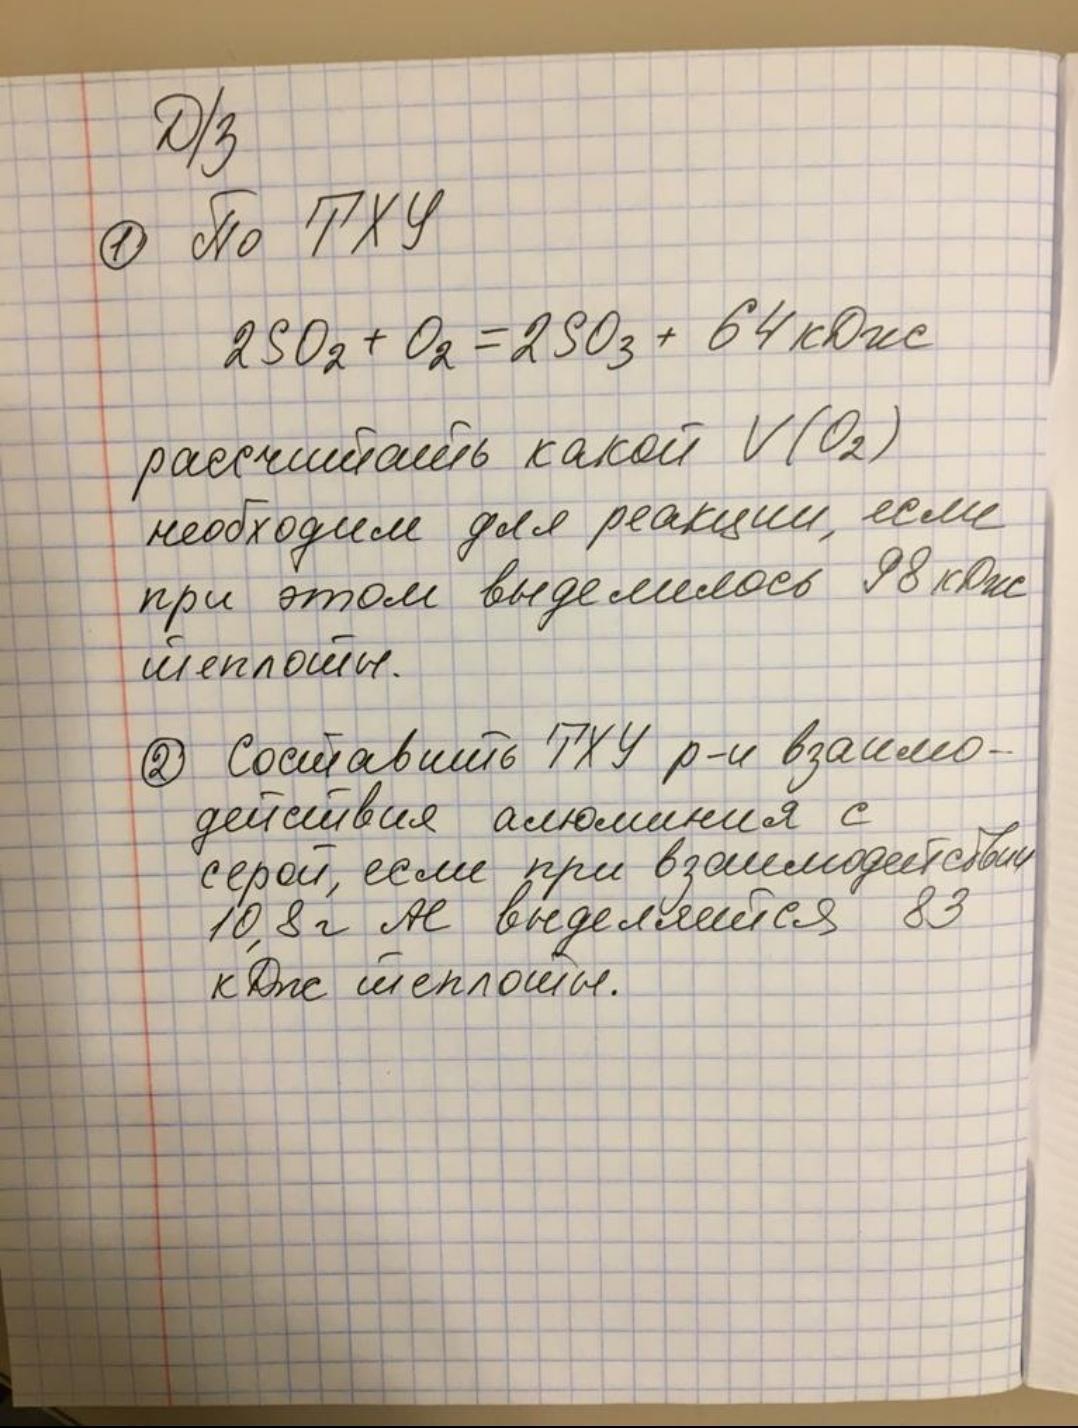 Д/з
① По ТХУ
2SO₂ + O₂ = 2SO₃ + 64 кДж
рассчитать какой V(O₂)
необходим для реакции, если
при этом выделилось 98 кДж
теплоты.
② Составить ТХУ р-и взаимо-
действия алюминия с
серой, если при взаимодействии
10,8 г Al выделяется 83
кДж теплоты.